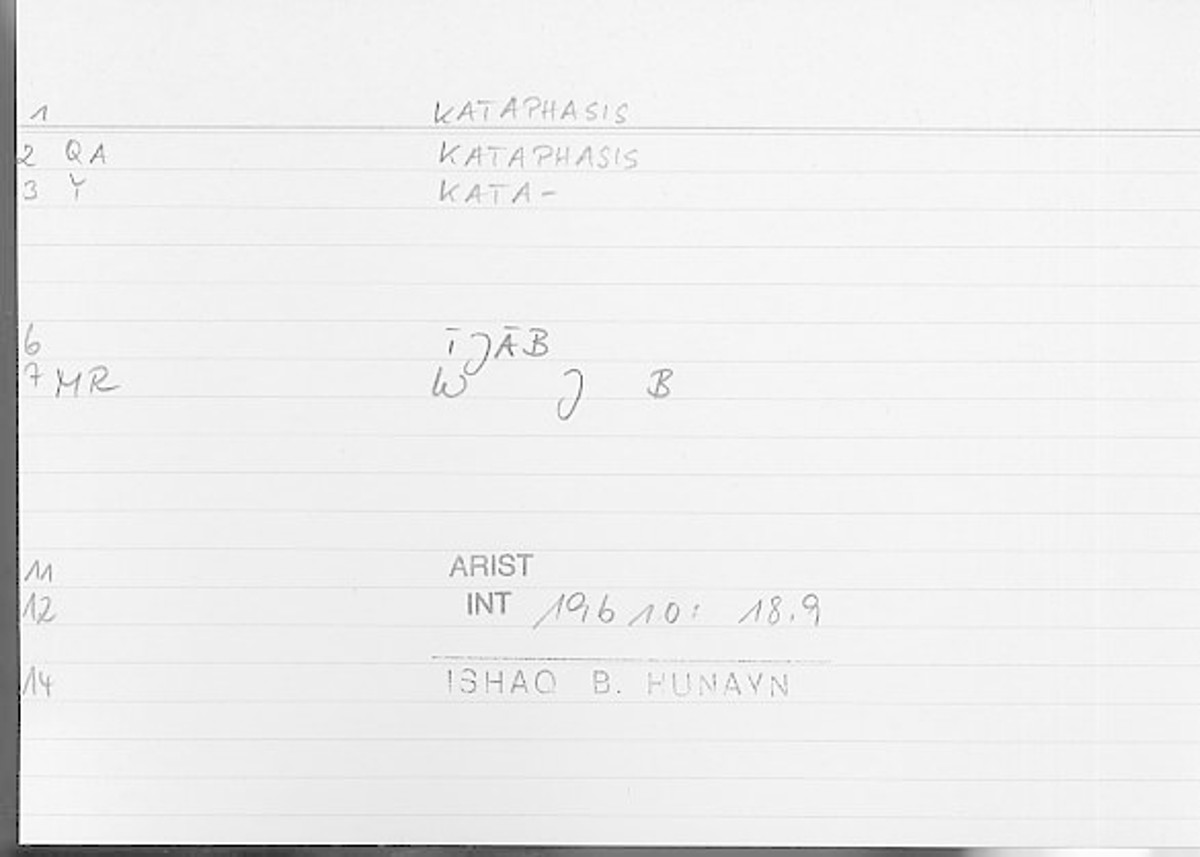 1 KATAPHASIS
2 QA KATAPHASIS
3 Y KATA-
6 ĪJĀB
7 MR W J B
11 ARIST
12 INT 19b10: 18.9
14 ISHAQ B. HUNAYN